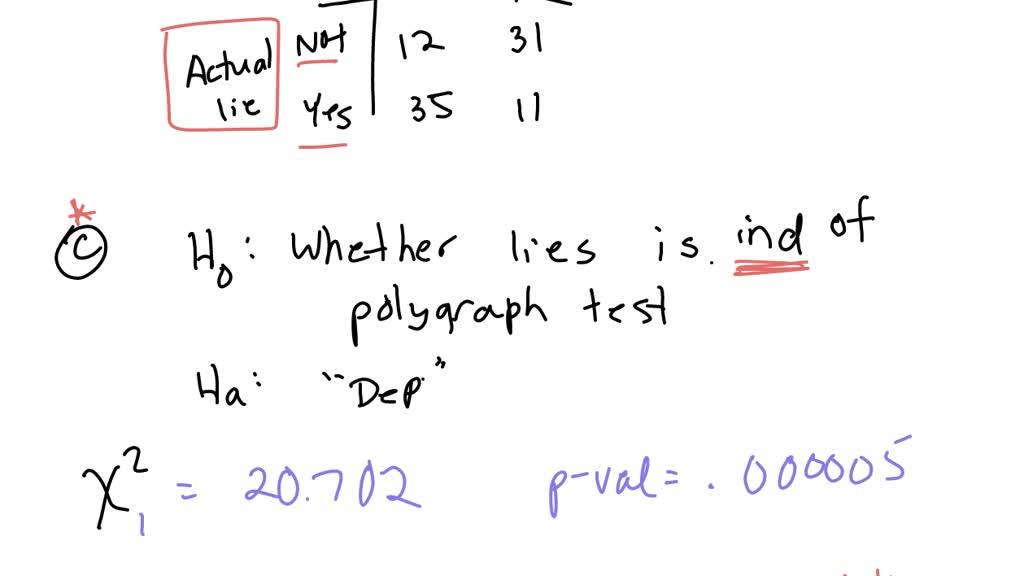 Actual Not 12 31
lie Yes 35 11
* C H0: Whether lies is. ind of
polygraph test
Ha: "Dep."
χ²₁ = 20.702 p-val = .000005